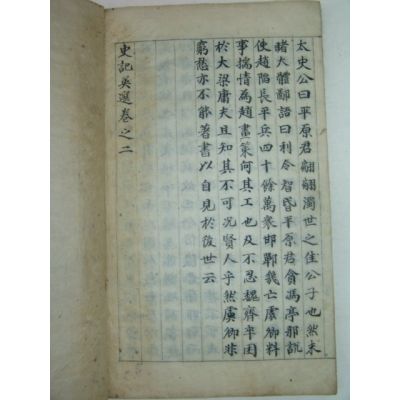 太史公曰平原君翩翩濁世之佳公子也然未
睹大體鄙語曰利令智昏平原君貪馮亭邪說
使趙陷長平兵四十餘萬衆邯鄲幾亡虞卿料
事揣情為趙畫策何其工也及不忍魏齊卒困
於大梁庸夫且知其不可況賢人乎然虞卿非
窮愁亦不能著書以自見於後世云
史記英選卷之二